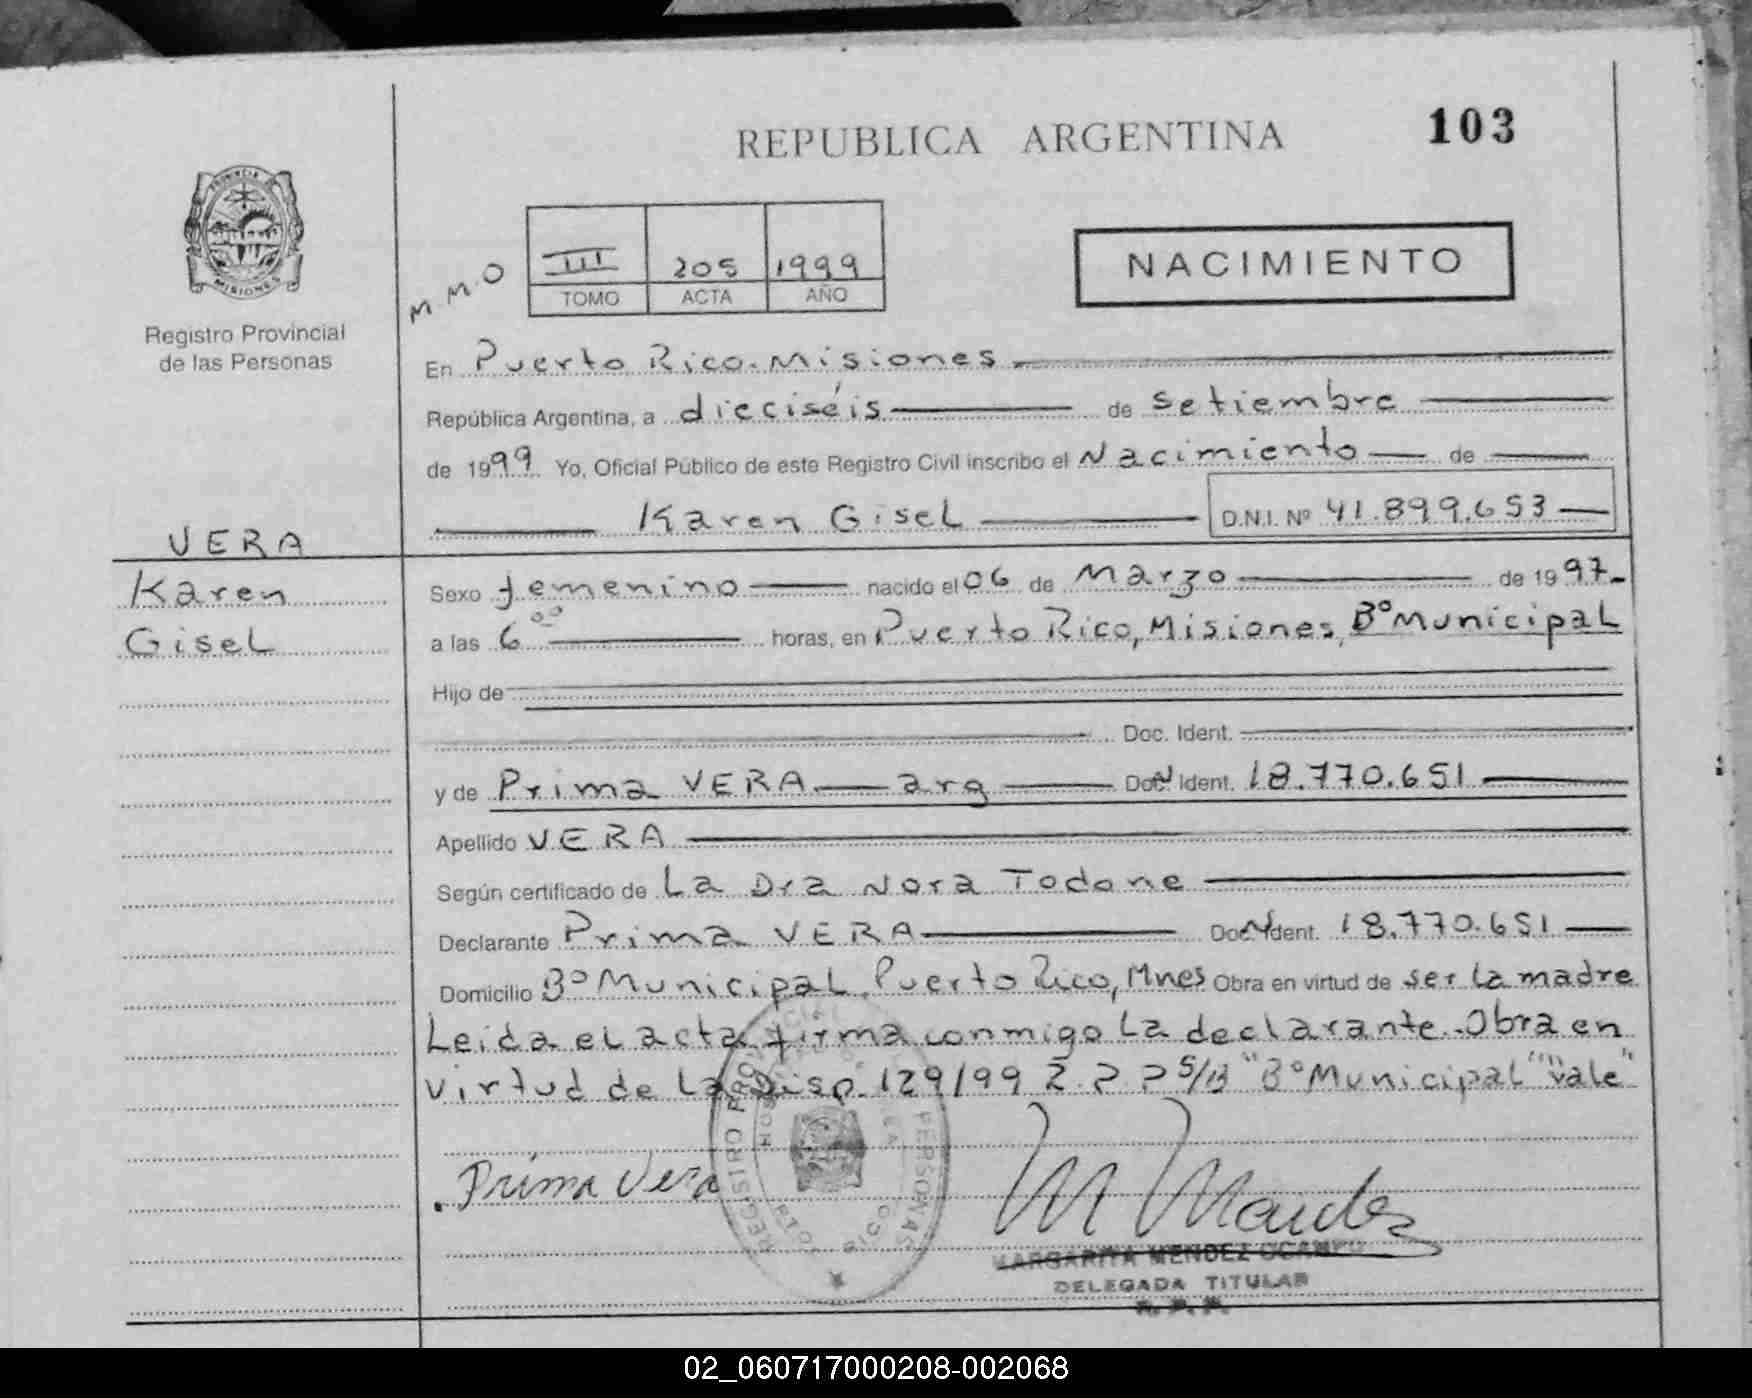 REPUBLICA ARGENTINA
103
PROVINCIA DE
MISIONES
Registro Provincial
de las Personas
M.M.O
III 205 1999
TOMO ACTA AÑO
NACIMIENTO
En Puerto Rico. Misiones
República Argentina, a dieciséis de setiembre
de 1999 Yo, Oficial Público de este Registro Civil inscribo el Nacimiento de
Karen Gisel D.N.I. Nº 41.899.653
VERA
Karen
Gisel
Sexo femenino nacido el 06 de Marzo de 1997
a las 6⁰⁰ horas, en Puerto Rico, Misiones, Bº Municipal
Hijo de
Doc. Ident.
y de Prima VERA arg Doc. Ident. 18.770.651
Apellido VERA
Según certificado de La Dra Nora Todone
Declarante Prima VERA Doc. Ident. 18.770.651
Domicilio Bº Municipal, Puerto Rico, Mnes Obra en virtud de ser la madre
Leida el acta firma conmigo la declarante. Obra en
virtud de la Disp. 129/99 S/B "Bº Municipal" "Vale"
Prima Vera
M Mendez
REGISTRO PROVINCIAL PERSONAS
RICO
MARGARITA MENDEZ OCAMPO
DELEGADA TITULAR
R. P. P.
02_060717000208-002068